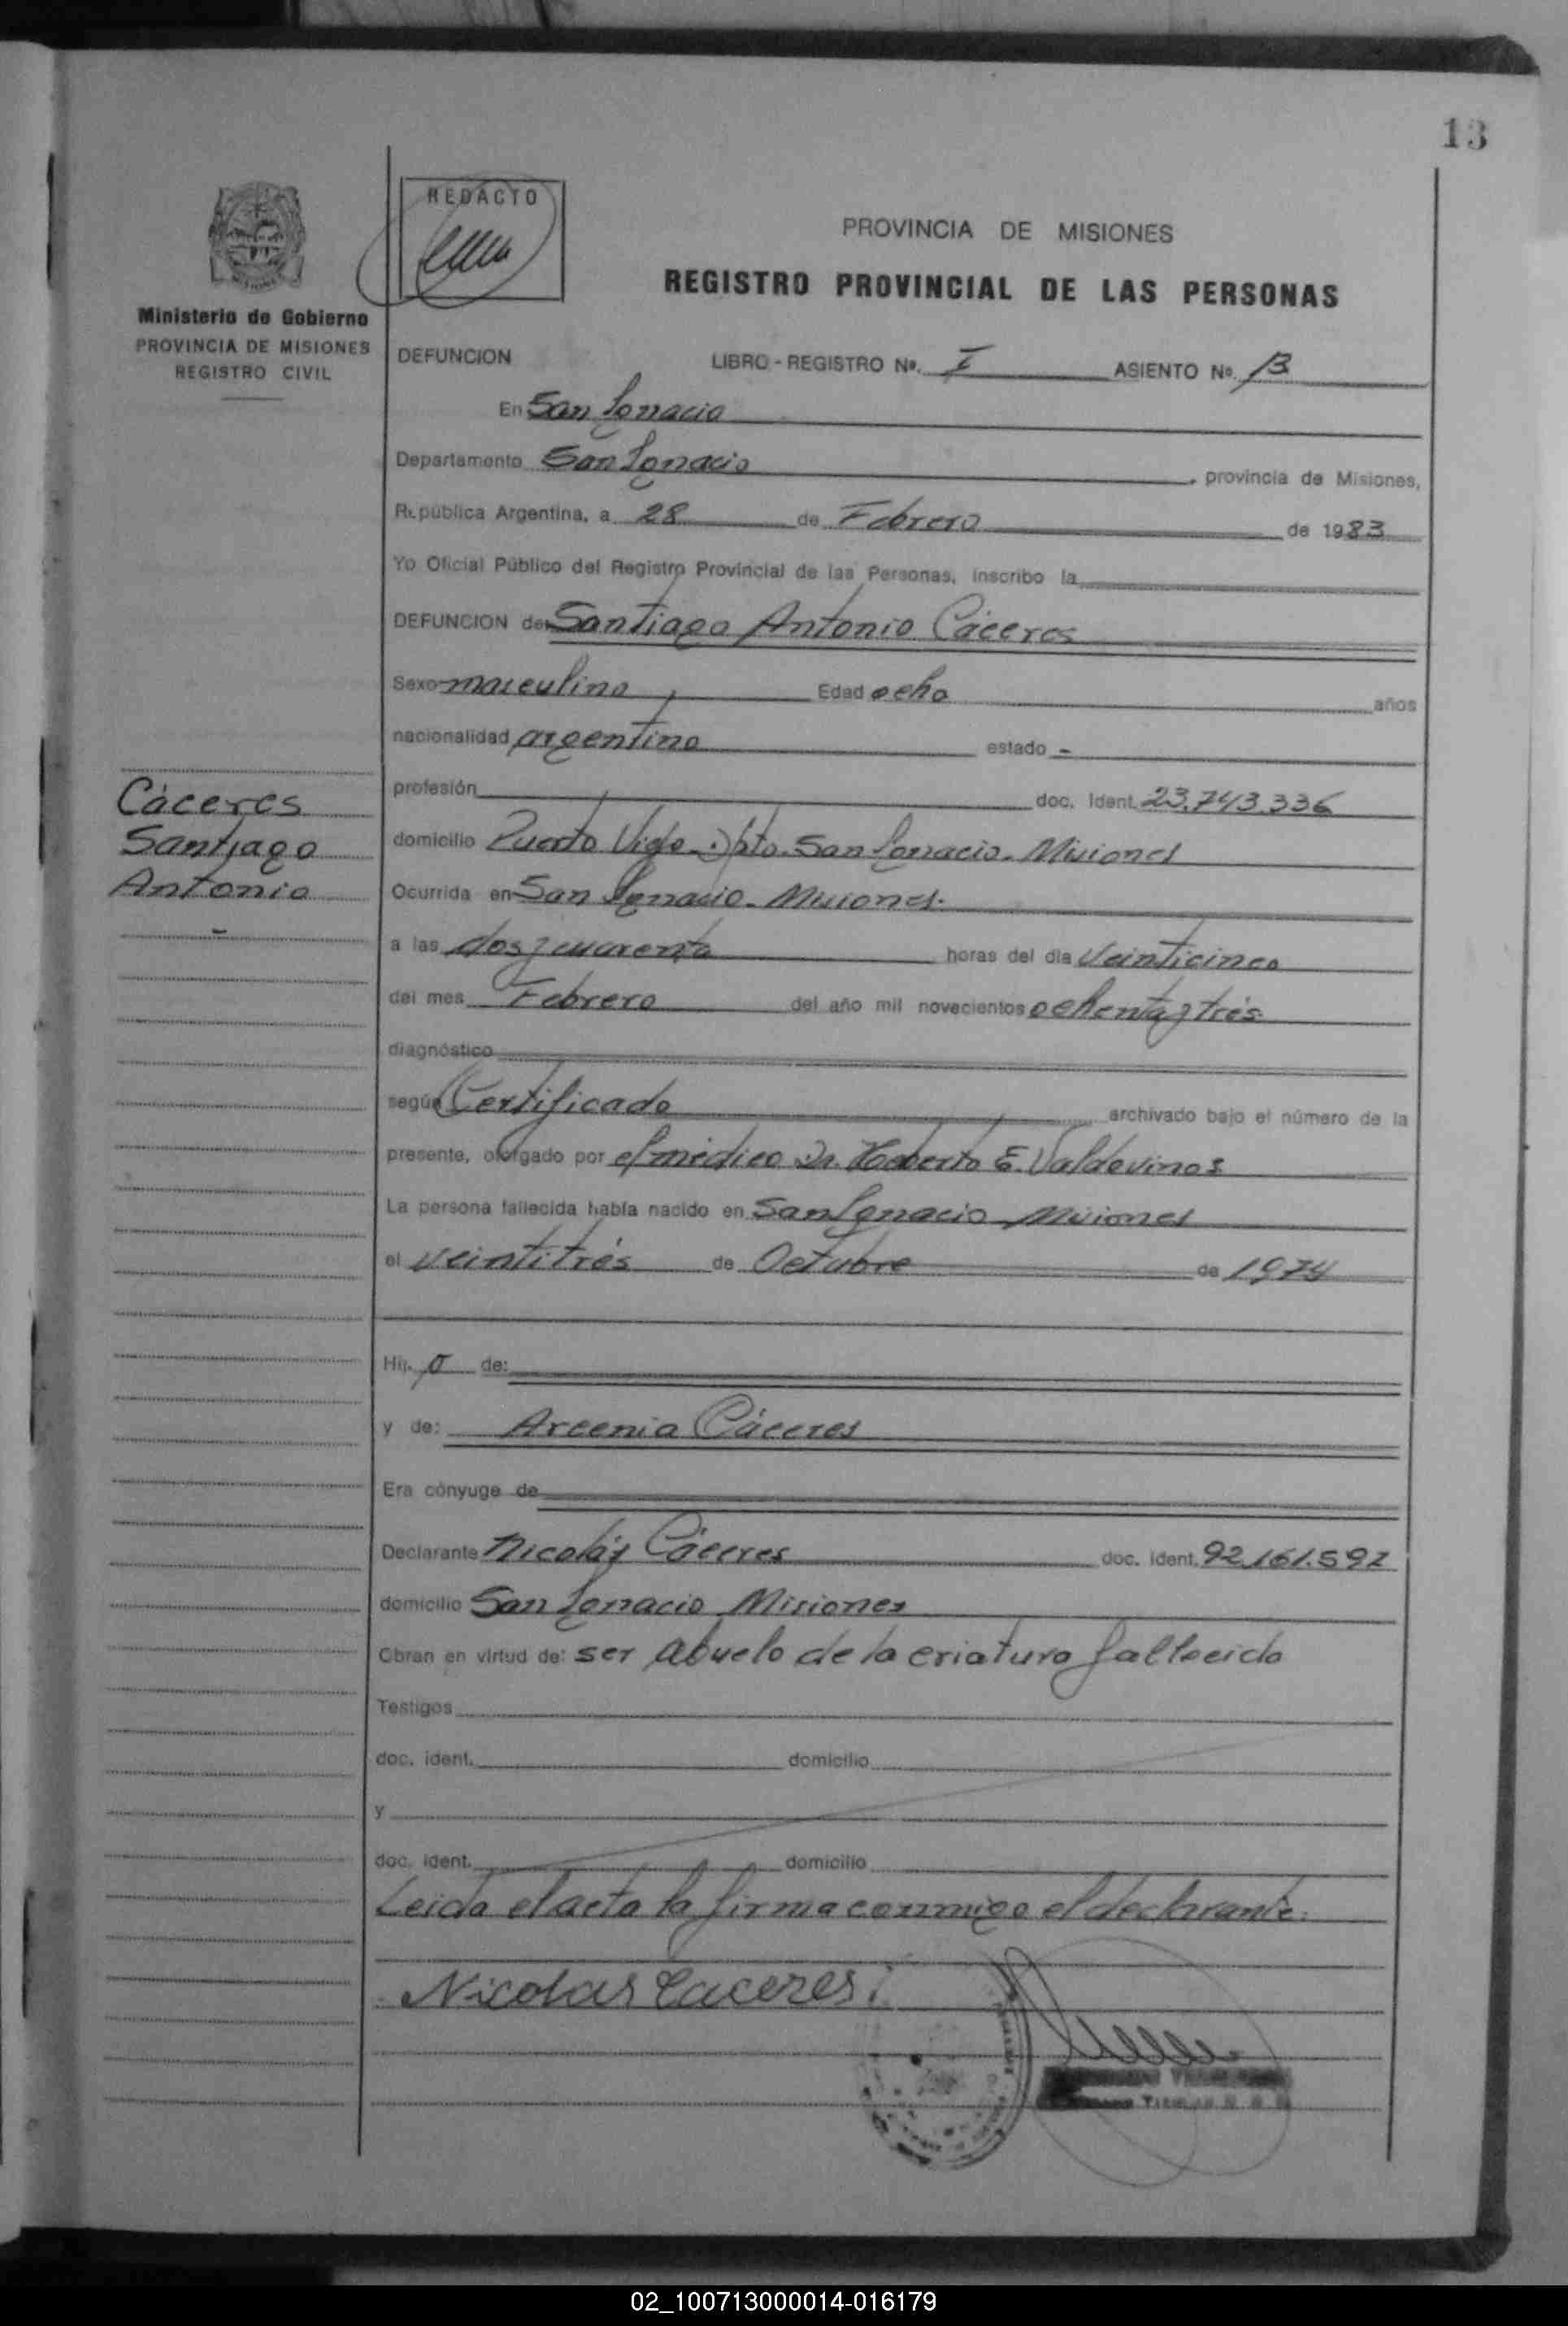 13
REDACTO
PROVINCIA DE MISIONES
REGISTRO PROVINCIAL DE LAS PERSONAS
Ministerio de Gobierno
PROVINCIA DE MISIONES
REGISTRO CIVIL
DEFUNCION LIBRO - REGISTRO Nº. I ASIENTO Nº. 13
En San Ignacio
Departamento San Ignacio, provincia de Misiones,
República Argentina, a 28 de Febrero de 1983
Yo Oficial Público del Registro Provincial de las Personas, inscribo la
DEFUNCION de Santiago Antonio Cáceres
Sexo masculino, Edad ocho años
nacionalidad argentino estado -
profesión doc. Ident. 23.743.336
Cáceres
Santiago
Antonio
-
domicilio Puerto Viejo. Dpto. San Ignacio. Misiones
Ocurrida en San Ignacio. Misiones.
a las dos y cuarenta horas del día veinticinco
del mes Febrero del año mil novecientos ochenta y trés.
diagnóstico
según Certificado archivado bajo el número de la
presente, otorgado por el médico Dr. E. Valdovinos
La persona fallecida había nacido en San Ignacio Misiones
el veintitrés de Octubre de 1974
Hij. o de:
y de: Arcenia Cáceres
Era cónyuge de
Declarante Nicolás Cáceres doc. ident. 92.161.592
domicilio San Ignacio Misiones
Obran en virtud de: ser abuelo de la criatura fallecida
Testigos
doc. ident. domicilio
y
doc. ident. domicilio
Leida el acta la firma conmigo el declarante.
Nicolas Caceres
02_100713000014-016179